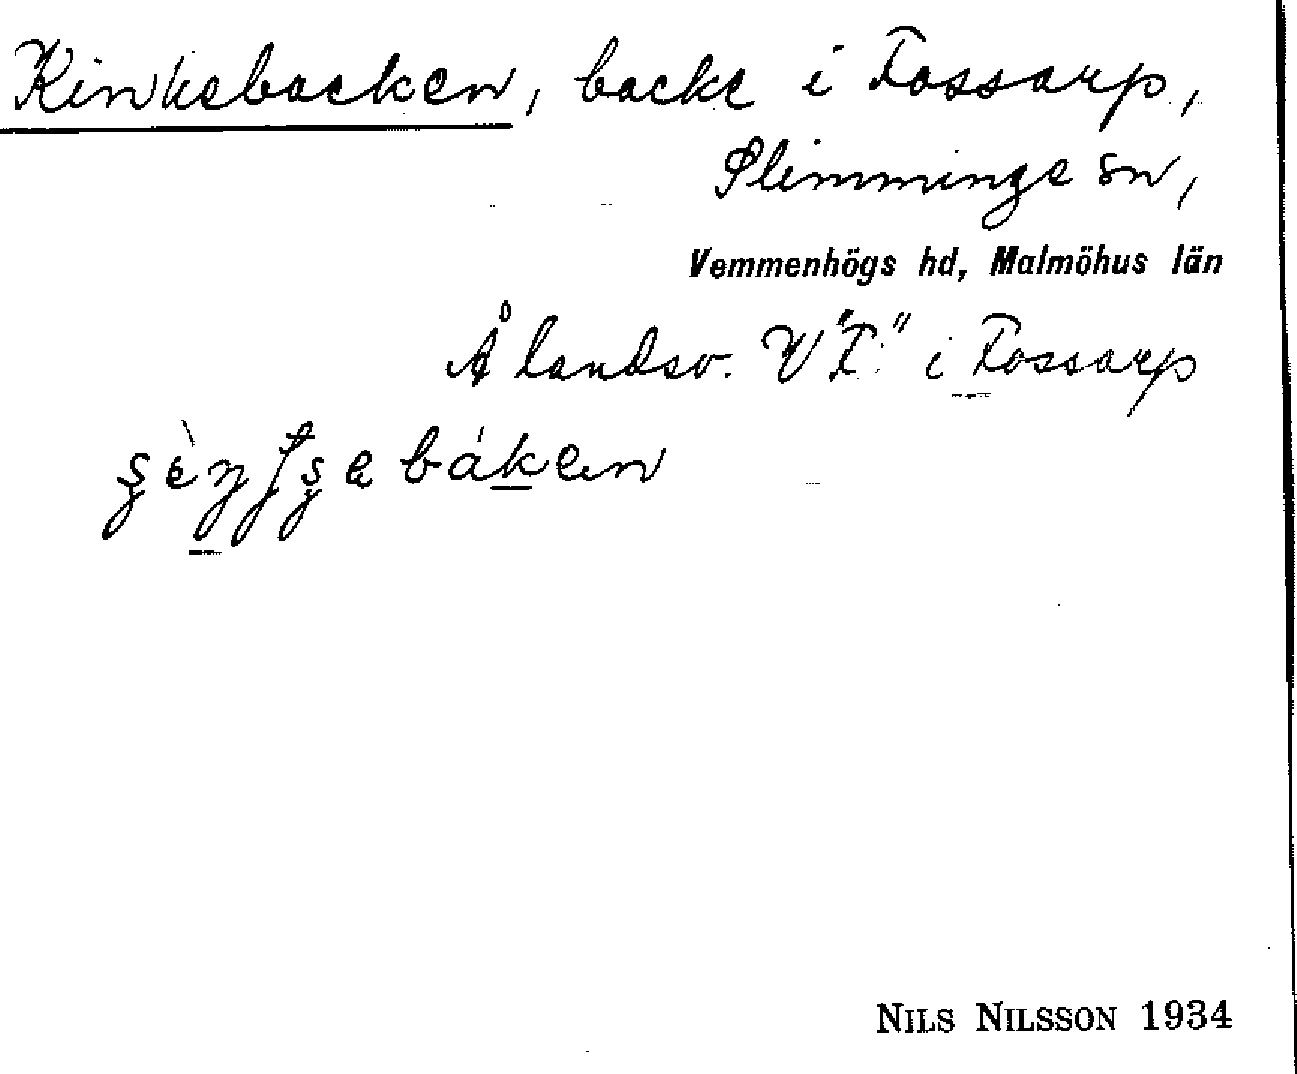 Kinkebacken, backe i Tossarp,
Slimminge sn,
Vemmenhögs hd, Malmöhus län
Å landsv. V "T." i Tossarp
NILS NILSSON 1934